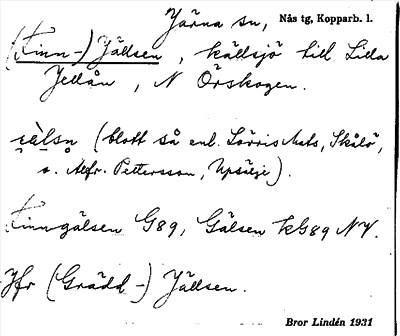 Järna sn, Nås tg, Kopparb. l.
(Finn-) Jällsen, källsjö till Lilla
Jellån, N Örskogen.
(blott så enl. Lörris Mats, Skålö,
o. Alfr. Pettersson, Uppsälje).
Finngälsen G89, Gälsen kG89 NV.
Jfr (Grädd-) Jällsen.
Bror Lindén 1931